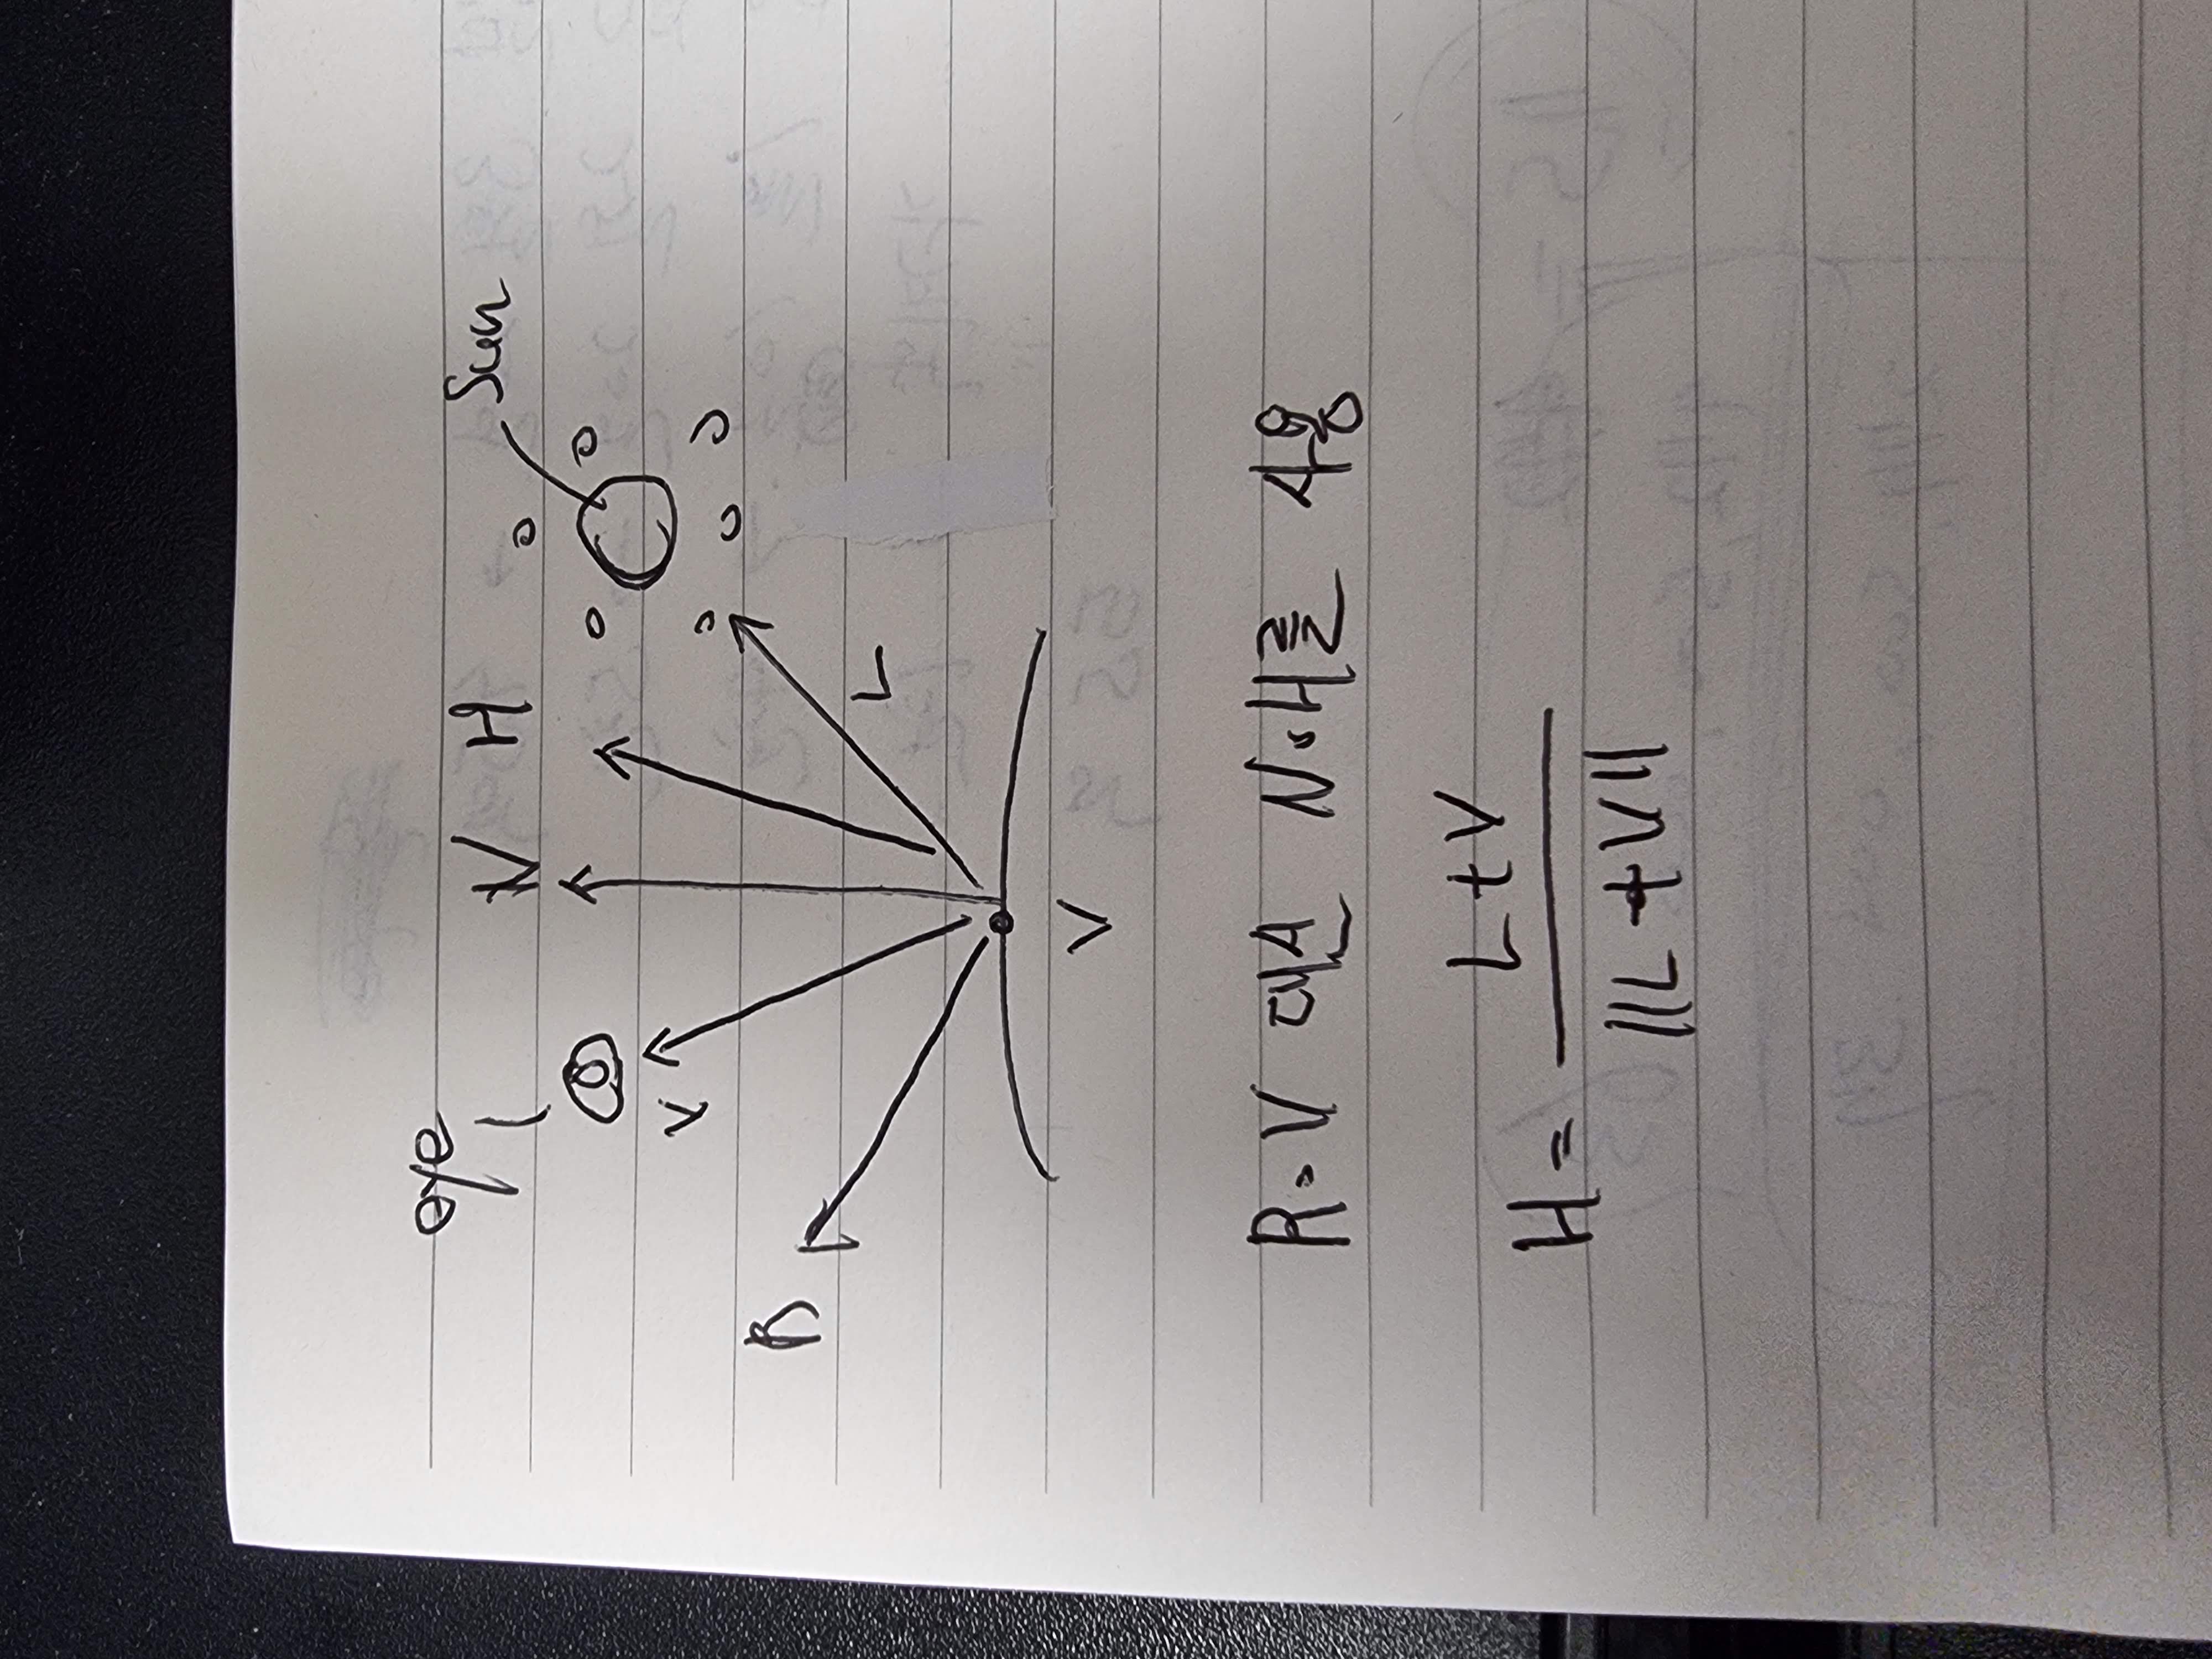 eye
N H
Sun
V
R
L
V
R·V 대신 N·H를 사용
H = L+V
||L+V||